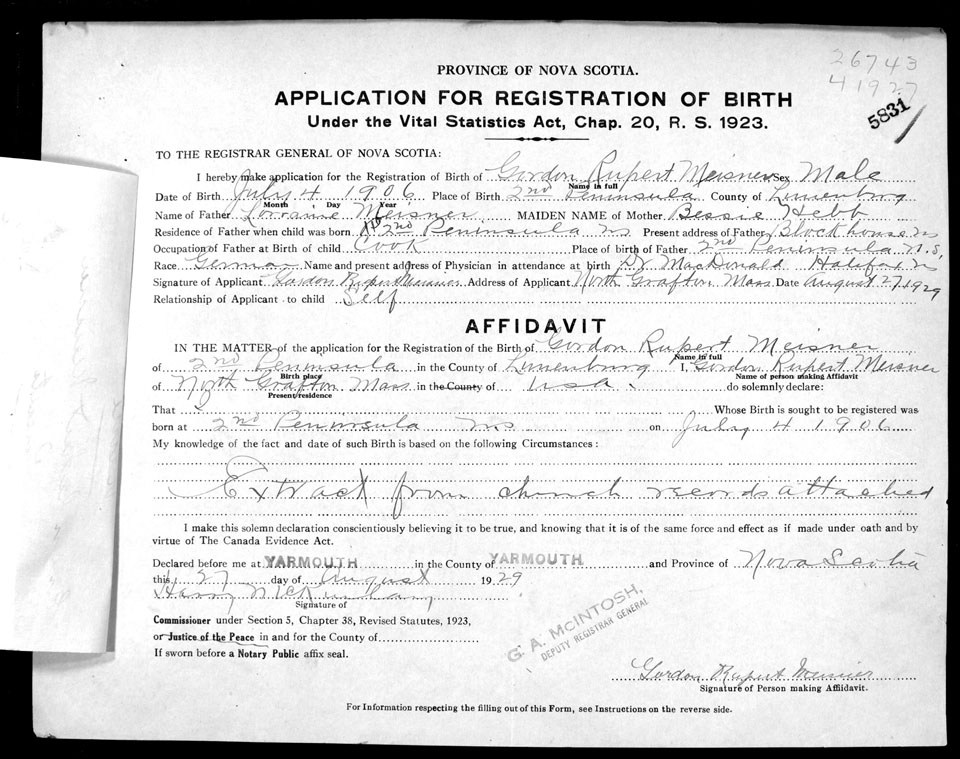 26743
41927
5831
PROVINCE OF NOVA SCOTIA.
APPLICATION FOR REGISTRATION OF BIRTH
Under the Vital Statistics Act, Chap. 20, R. S. 1923.
TO THE REGISTRAR GENERAL OF NOVA SCOTIA:
I hereby make application for the Registration of Birth of Gordon Rupert Meisner Sex Male
Name in full
Date of Birth July 4 1906 Place of Birth 2nd Peninsula County of Lunenburg
Month Day Year
Name of Father Lorraine Meisner MAIDEN NAME of Mother Bessie Hebb
Residence of Father when child was born 2nd Peninsula NS Present address of Father Blockhouse NS
Occupation of Father at Birth of child Cook Place of birth of Father 2nd Peninsula N.S.
Race German Name and present address of Physician in attendance at birth Dr MacDonald Halifax
Signature of Applicant Gordon Rupert Meisner Address of Applicant North Grafton Mass Date August 27 1929
Relationship of Applicant to child Self
AFFIDAVIT
IN THE MATTER of the application for the Registration of the Birth of Gordon Rupert Meisner
Name in full
of 2nd Peninsula in the County of Lunenburg I, Gordon Rupert Meisner
Birth place Name of person making Affidavit
of North Grafton Mass in the County of USA do solemnly declare:
Present residence
That Whose Birth is sought to be registered was
born at 2nd Peninsula NS on July 4 1906
My knowledge of the fact and date of such Birth is based on the following Circumstances:
Extract from church records attached
I make this solemn declaration conscientiously believing it to be true, and knowing that it is of the same force and effect as if made under oath and by
virtue of The Canada Evidence Act.
Declared before me at YARMOUTH in the County of YARMOUTH and Province of Nova Scotia
this 27 day of August 1929
Harry
Signature of
Commissioner under Section 5, Chapter 38, Revised Statutes, 1923,
or Justice of the Peace in and for the County of
If sworn before a Notary Public affix seal.
G. A. McINTOSH,
DEPUTY REGISTRAR GENERAL
Gordon Rupert Meisner
Signature of Person making Affidavit.
For Information respecting the filling out of this Form, see Instructions on the reverse side.